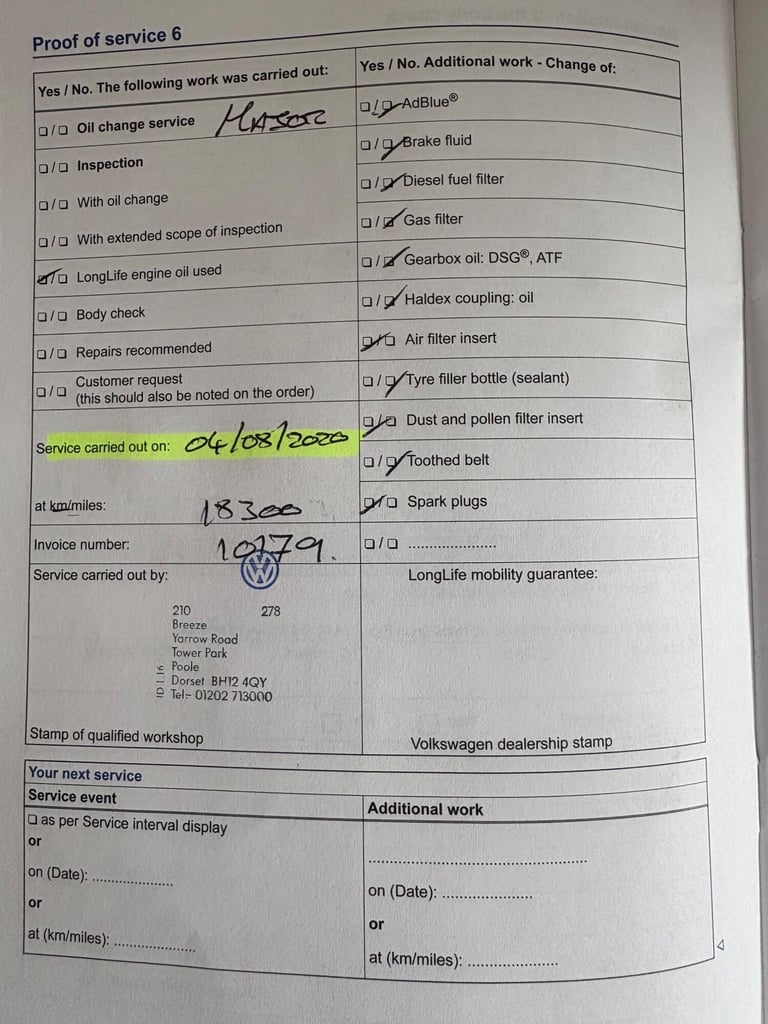 Proof of service 6
Yes / No. The following work was carried out:
☐/☐ Oil change service MAJOR
☐/☐ Inspection
☐/☐ With oil change
☐/☐ With extended scope of inspection
☑/☐ LongLife engine oil used
☐/☐ Body check
☐/☐ Repairs recommended
☐/☐ Customer request
(this should also be noted on the order)
Service carried out on: 04/08/2020
at km/miles: 18300
Invoice number: 10179.
Service carried out by:
210 278
Breeze
Yarrow Road
Tower Park
Poole
Dorset BH12 4QY
Tel:- 01202 713000
Stamp of qualified workshop
Yes / No. Additional work - Change of:
☐/☑ AdBlue®
☐/☑ Brake fluid
☐/☑ Diesel fuel filter
☐/☑ Gas filter
☐/☑ Gearbox oil: DSG®, ATF
☐/☑ Haldex coupling: oil
☑/☐ Air filter insert
☐/☑ Tyre filler bottle (sealant)
☑/☐ Dust and pollen filter insert
☐/☑ Toothed belt
☑/☐ Spark plugs
☐/☐ ......................
LongLife mobility guarantee:
Volkswagen dealership stamp
Your next service
Service event
☐ as per Service interval display
or
on (Date): ....................
or
at (km/miles): ....................
Additional work
......................................................
on (Date): ......................
or
at (km/miles): ......................